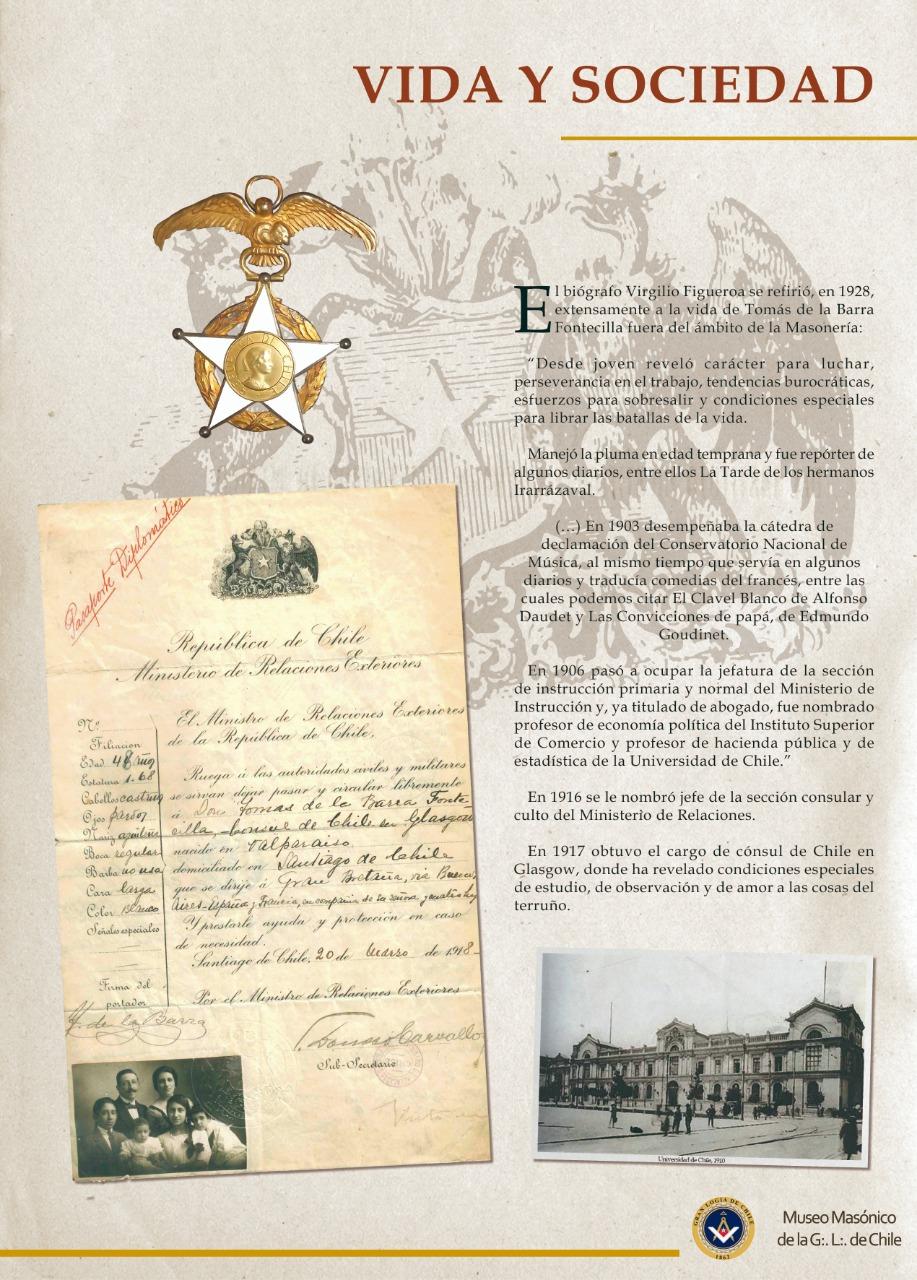 VIDA Y SOCIEDAD
El biógrafo Virgilio Figueroa se refirió, en 1928,
extensamente a la vida de Tomás de la Barra
Fontecilla fuera del ámbito de la Masonería:
“Desde joven reveló carácter para luchar,
perseverancia en el trabajo, tendencias burocráticas,
esfuerzos para sobresalir y condiciones especiales
para librar las batallas de la vida.
Manejó la pluma en edad temprana y fue repórter de
algunos diarios, entre ellos La Tarde de los hermanos
Irarrázaval.
(...) En 1903 desempeñaba la cátedra de
declamación del Conservatorio Nacional de
Música, al mismo tiempo que servía en algunos
diarios y traducía comedias del francés, entre las
cuales podemos citar El Clavel Blanco de Alfonso
Daudet y Las Convicciones de papá, de Edmundo
Goudinet.
En 1906 pasó a ocupar la jefatura de la sección
de instrucción primaria y normal del Ministerio de
Instrucción y, ya titulado de abogado, fue nombrado
profesor de economía política del Instituto Superior
de Comercio y profesor de hacienda pública y de
estadística de la Universidad de Chile.”
En 1916 se le nombró jefe de la sección consular y
culto del Ministerio de Relaciones.
En 1917 obtuvo el cargo de cónsul de Chile en
Glasgow, donde ha revelado condiciones especiales
de estudio, de observación y de amor a las cosas del
terruño.
Pasaporte Diplomático
República de Chile
Ministerio de Relaciones Exteriores
Nº
Filiación
Edad 48 años
Estatura 1.68
Cabellos castaños
Ojos pardos
Nariz aguileña
Boca regular
Barba no usa
Cara larga
Color blanco
Señales especiales
Firma del
portador
T. de la Barra
El Ministro de Relaciones Exteriores
de la República de Chile,
Ruega á las autoridades civiles y militares
se sirvan dejar pasar y circular libremente
á Don Tomas de la Barra Fonte-
cilla, Consul de Chile en Glasgow
nacido en Valparaiso
domiciliado en Santiago de Chile
que se dirije á Gran Bretaña, via Buenos
Aires-España y Francia, en compañia de su señora y cuatro hijos
Y prestarle ayuda y protección en caso
de necesidad.
Santiago de Chile, 20 de Marzo de 1918-
Por el Ministro de Relaciones Exteriores
Donoso Carvallo
Sub-Secretario
Universidad de Chile, 1910
GRAN LOGIA DE CHILE
1862
Museo Masónico
de la G:. L:. de Chile